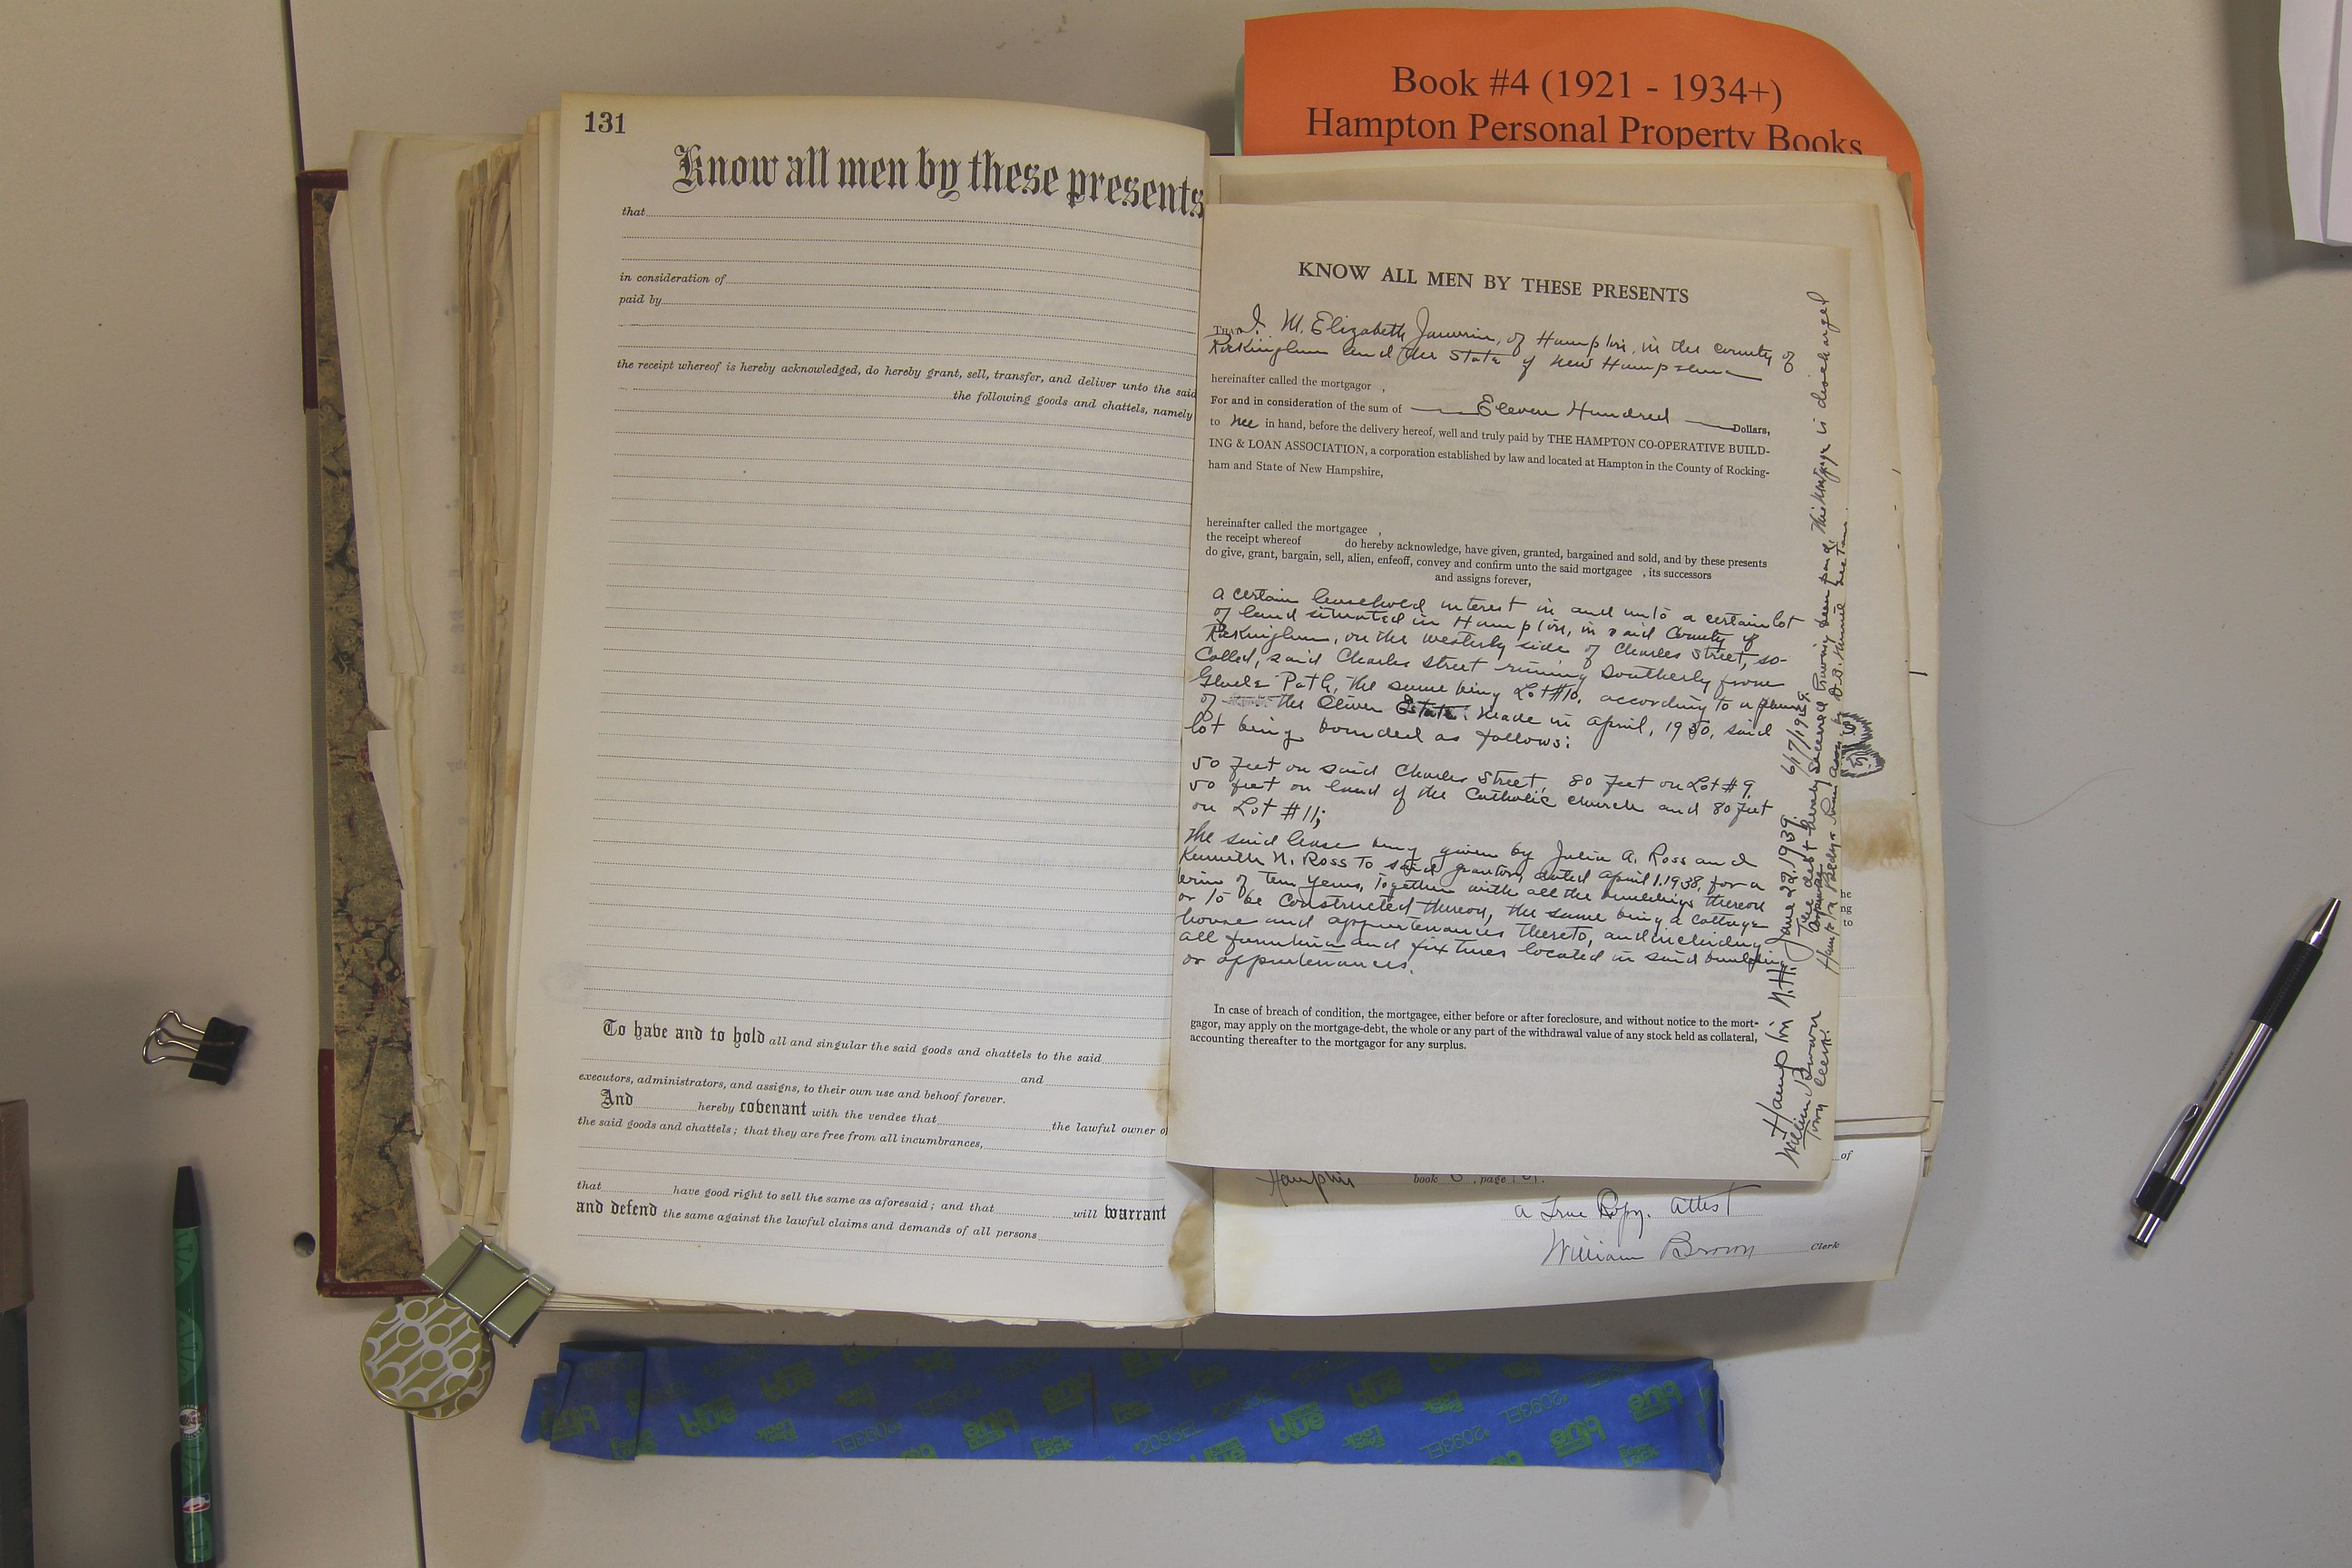 Book #4 (1921 - 1934+)
Hampton Personal Property Books
131
Know all men by these presents
that
in consideration of
paid by
the receipt whereof is hereby acknowledged, do hereby grant, sell, transfer, and deliver unto the said
the following goods and chattels, namely
To have and to hold all and singular the said goods and chattels to the said
and
executors, administrators, and assigns, to their own use and behoof forever.
And hereby covenant with the vendee that the lawful owner of
the said goods and chattels; that they are free from all incumbrances,
that have good right to sell the same as aforesaid; and that will warrant
and defend the same against the lawful claims and demands of all persons
KNOW ALL MEN BY THESE PRESENTS
THAT I, M. Elizabeth Janvrin, of Hampton, in the County of
Rockingham and the State of New Hampshire
hereinafter called the mortgagor ,
For and in consideration of the sum of Eleven Hundred Dollars,
to me in hand, before the delivery hereof, well and truly paid by THE HAMPTON CO-OPERATIVE BUILD-
ING & LOAN ASSOCIATION, a corporation established by law and located at Hampton in the County of Rocking-
ham and State of New Hampshire,
hereinafter called the mortgagee ,
the receipt whereof do hereby acknowledge, have given, granted, bargained and sold, and by these presents
do give, grant, bargain, sell, alien, enfeoff, convey and confirm unto the said mortgagee , its successors
and assigns forever,
a certain leasehold interest in and unto a certain lot
of land situated in Hampton, in said County of
Rockingham, on the westerly side of Charles Street, so-
called, said Charles Street running Southerly from
Glade Path, the same being Lot #10, according to a plan
of the Oliver Estate: made in April, 1930, said
lot being bounded as follows:
50 feet on said Charles Street; 80 feet on Lot #9,
50 feet on land of the Catholic church and 80 feet
on Lot #11;
The said lease being given by Julia A. Ross and
Kenneth N. Ross to said grantor, dated April 1, 1938, for a
term of ten years, Together with all the buildings thereon
or to be constructed thereon, the same being a cottage
house and appurtenances thereto, and including
all furniture and fixtures located in said building
or appurtenances.
In case of breach of condition, the mortgagee, either before or after foreclosure, and without notice to the mort-
gagor, may apply on the mortgage-debt, the whole or any part of the withdrawal value of any stock held as collateral,
accounting thereafter to the mortgagor for any surplus.
Hampton N.H. June 22, 1939. 6/7/1939.
William Brown
Town Clerk.
The debt hereby secured having been paid, this mortgage is discharged
he
ng
to
of
Hampton book 6, page
a True Copy. Attest
William Brown Clerk